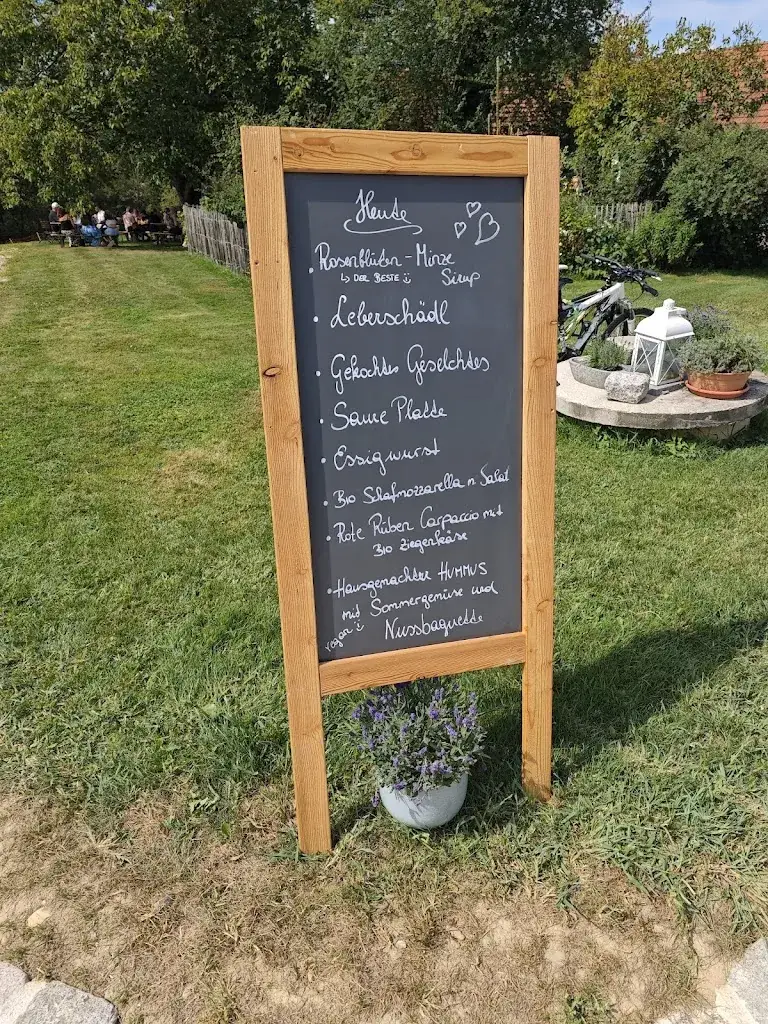 Heute
• Rosenblüten - Minze
↳ DER BESTE :) Sirup
• Leberschädl
• Gekochtes Geselchtes
• Saure Platte
• Essigwurst
• Bio Schafmozzarella m. Salat
• Rote Rüben Carpaccio mit
Bio Ziegenkäse
• Hausgemachter HUMMUS
mit Sommergemüse und
vegan :) Nussbaguette